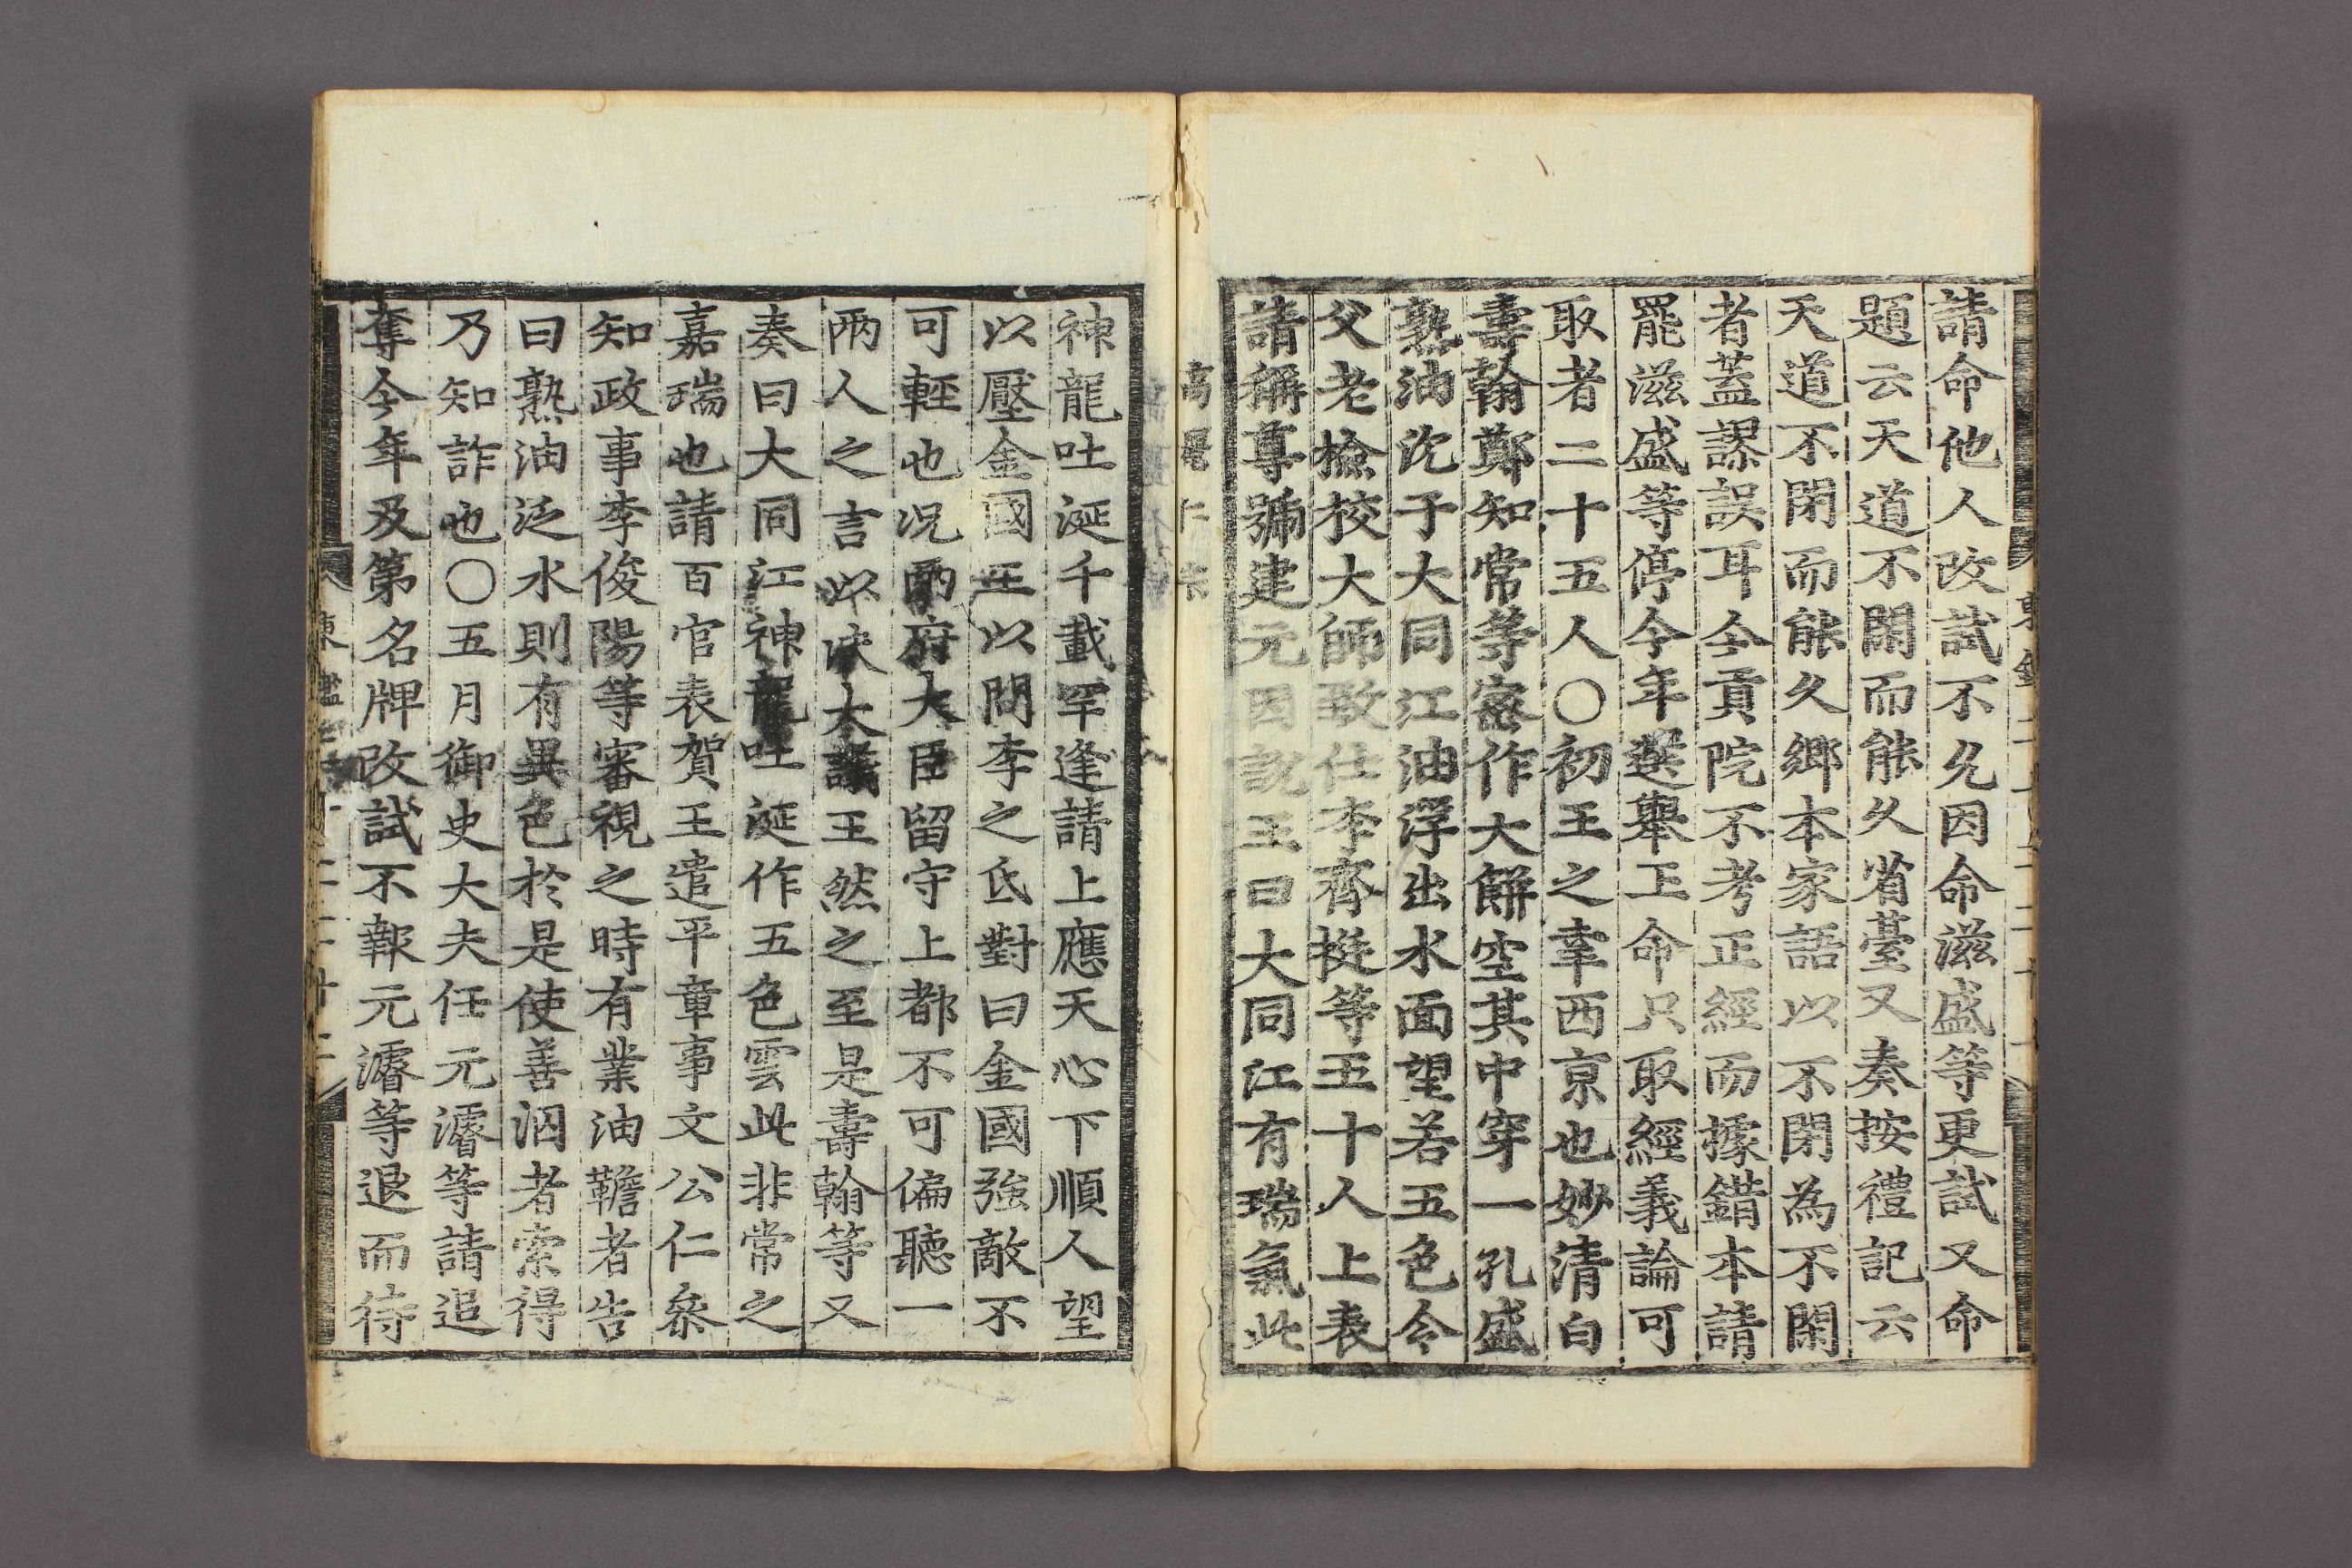 請命他人改試不允因命滋盛等更試又命
題云天道不閑而能久省臺又奏按禮記云
天道不閉而能久鄉本家語以不閉為不閑
者蓋謬誤耳今貢院不考正經而據錯本請
罷滋盛等停今年選擧王命只取經義論可
取者二十五人〇初王之幸西京也妙淸白
壽翰鄭知常等密作大餠空其中穿一孔盛
熟油沈于大同江油浮出水面望若五色今
父老檢校大師致仕李齊挺等五十人上表
請稱尊號建元因說王曰大同江有瑞氣此
高麗仁宗
神龍吐涎千載罕逢請上應天心下順人望
以壓金國王以問李之氐對曰金國強敵不
可輕也况兩府大臣留守上都不可偏聽一
兩人之言以決大議王然之至是壽翰等又
奏曰大同江神龍吐涎作五色雲此非常之
嘉瑞也請百官表賀王遣平章事文公仁叅
知政事李俊陽等審視之時有業油韂者告
曰熟油泛水則有異色於是使善泅者索得
乃知詐也〇五月御史大夫任元濬等請追
奪今年及第名牌改試不報元濬等退而待
東鑑